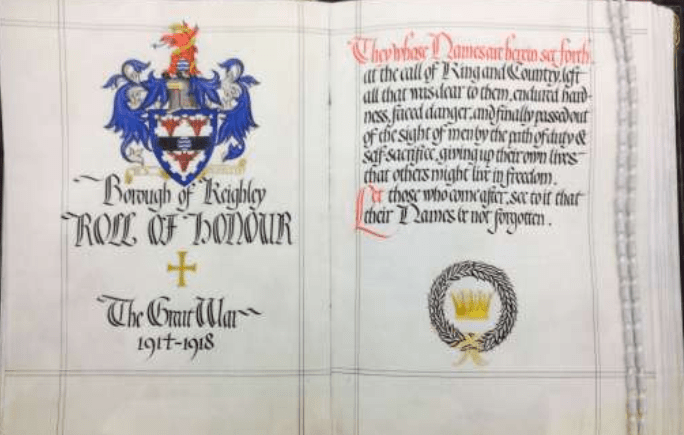 Borough of Keighley
ROLL OF HONOUR
The Great War
1914-1918
They whose Names are herein set forth
at the call of King and Country, left
all that was dear to them, endured hard-
ness, faced danger, and finally passed out
of the sight of men by the path of duty &
self-sacrifice, giving up their own lives
that others might live in freedom.
Let those who come after, see to it that
their Names be not forgotten.